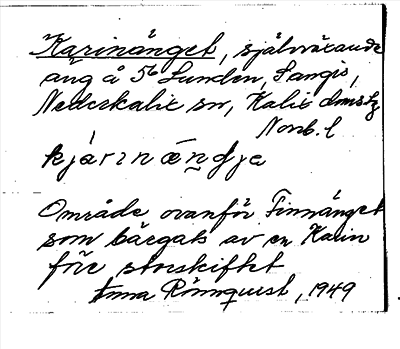 Karinänget, självvätande
äng å 56 Lunden, Sangis,
Nederkalix sn, Kalix dmsk
Norrb. l
kjárɪnǽndja
Område ovanför Finnänget
som bärgats av en Karin
före storskiftet
Anna Rönnquist, 1949